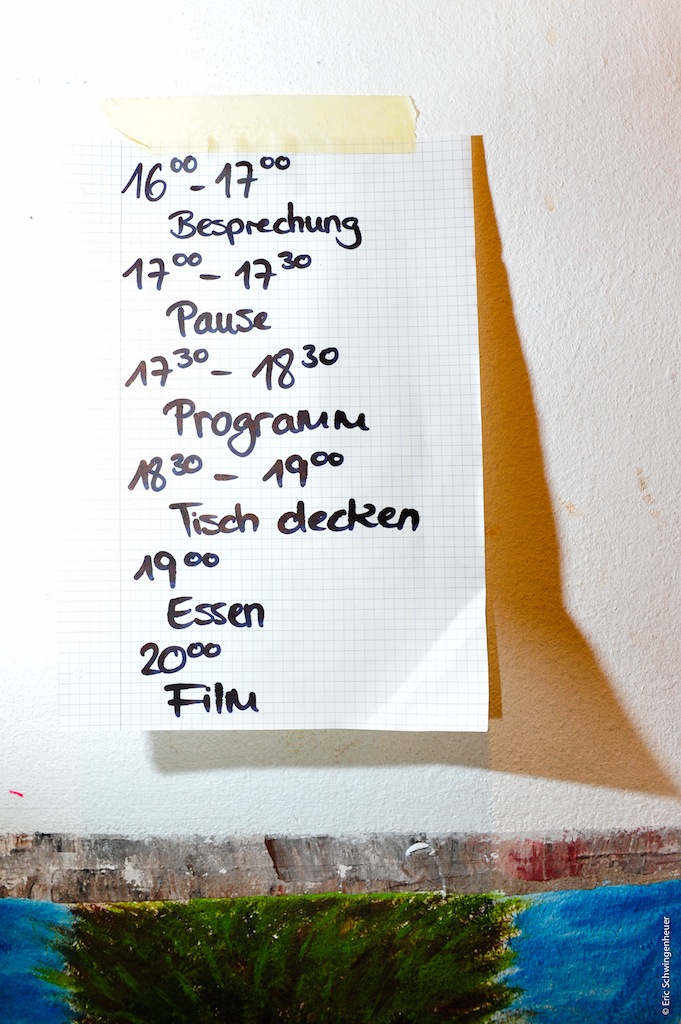 16⁰⁰ - 17⁰⁰
Besprechung
17⁰⁰ - 17³⁰
Pause
17³⁰ - 18³⁰
Programm
18³⁰ - 19⁰⁰
Tisch decken
19⁰⁰
Essen
20⁰⁰
Film
© Eric Schwingenheuer